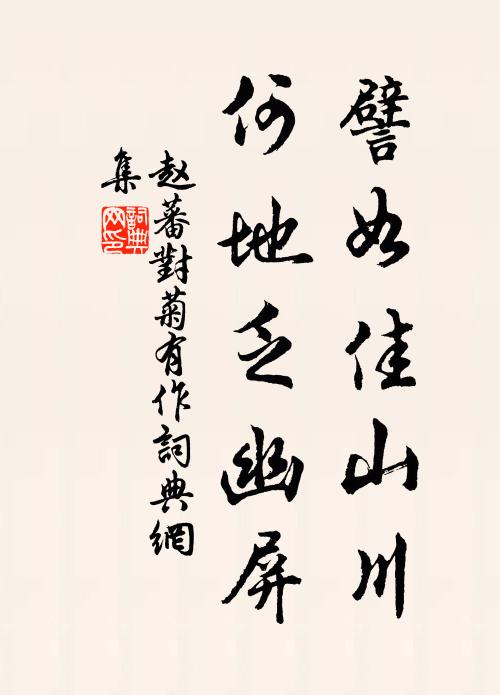 譬如佳山川
何地乏幽屏
赵蕃對菊有作詞典網
集
詞典
网印